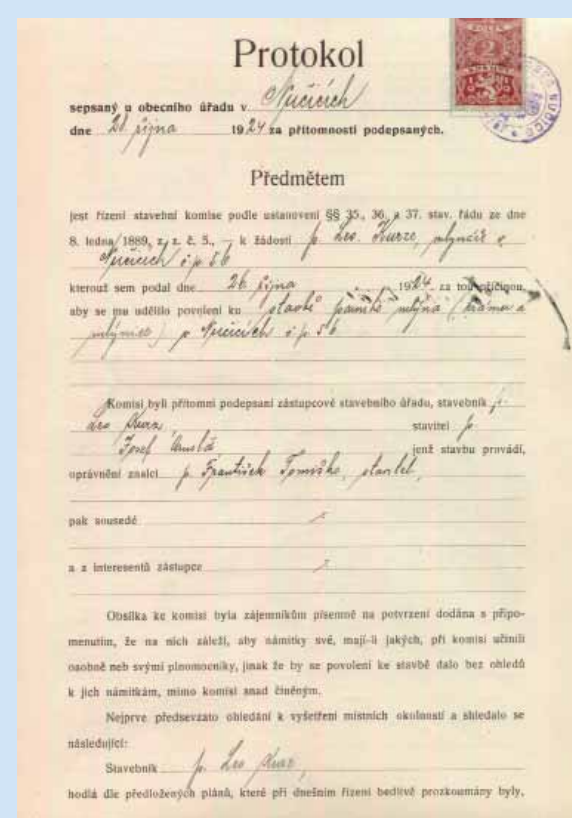 Protokol
sepsaný u obecního úřadu v Nučicích
dne 28. října 1924 za přítomnosti podepsaných.
2
Předmětem
jest řízení stavební komise podle ustanovení §§ 35., 36. a 37. stav. řádu ze dne
8. ledna 1889, z. z. č. 5., — k žádosti p. Leo. Kurze, mlynáře v
Nučicích č. p. 56
kterouž sem podal dne 26. října 1924 za tou příčinou,
aby se mu udělilo povolení ku stavbě parního mlýna (krámu a
mlýnice) v Nučicích č. p. 56
Komisi byli přítomni podepsaní zástupcové stavebního úřadu, stavebník p.
Leo Kurz, stavitel p.
Josef jenž stavbu provádí,
oprávnění znalci p. František stavitel,
pak sousedé
a z interesentů zástupce
Obsílka ke komisi byla zájemníkům písemně na potvrzení dodána s připo-
menutím, že na nich záleží, aby námitky své, mají-li jakých, při komisi učinili
osobně neb svými plnomocníky, jinak že by se povolení ke stavbě dalo bez ohledů
k jich námitkám, mimo komisi snad činěným.
Nejprve předsevzato ohledání k vyšetření místních okolností a shledalo se
následující:
Stavebník p. Leo Kurz,
hodlá dle předložených plánů, které při dnešním řízení bedlivě prozkoumány byly,